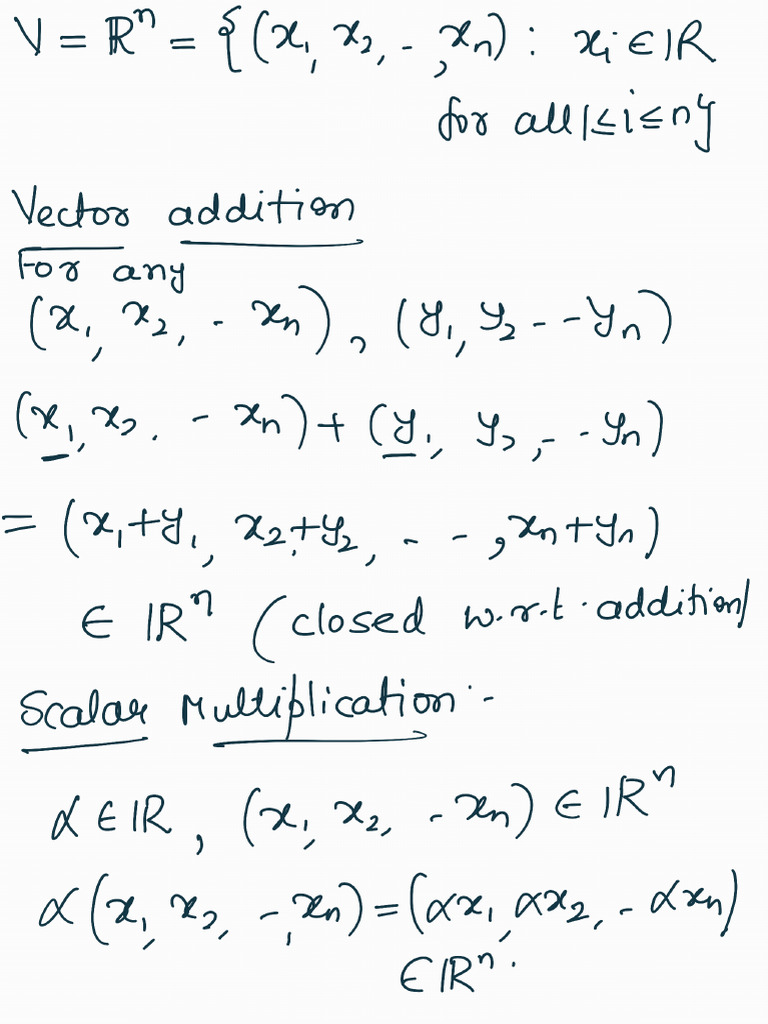 V = ℝⁿ = {(x₁, x₂, - , xₙ) : xᵢ ∈ ℝ
for all 1≤i≤n}
Vector addition
For any
(x₁, x₂, - xₙ), (y₁, y₂ - - yₙ)
(x₁, x₂. - xₙ) + (y₁, y₂, - - yₙ)
= (x₁+y₁, x₂+y₂, - - , xₙ+yₙ)
∈ ℝⁿ (closed w.r.t. addition)
Scalar Multiplication :-
α ∈ ℝ, (x₁, x₂, - xₙ) ∈ ℝⁿ
α(x₁, x₂, -, xₙ) = (αx₁, αx₂, - αxₙ)
∈ ℝⁿ.